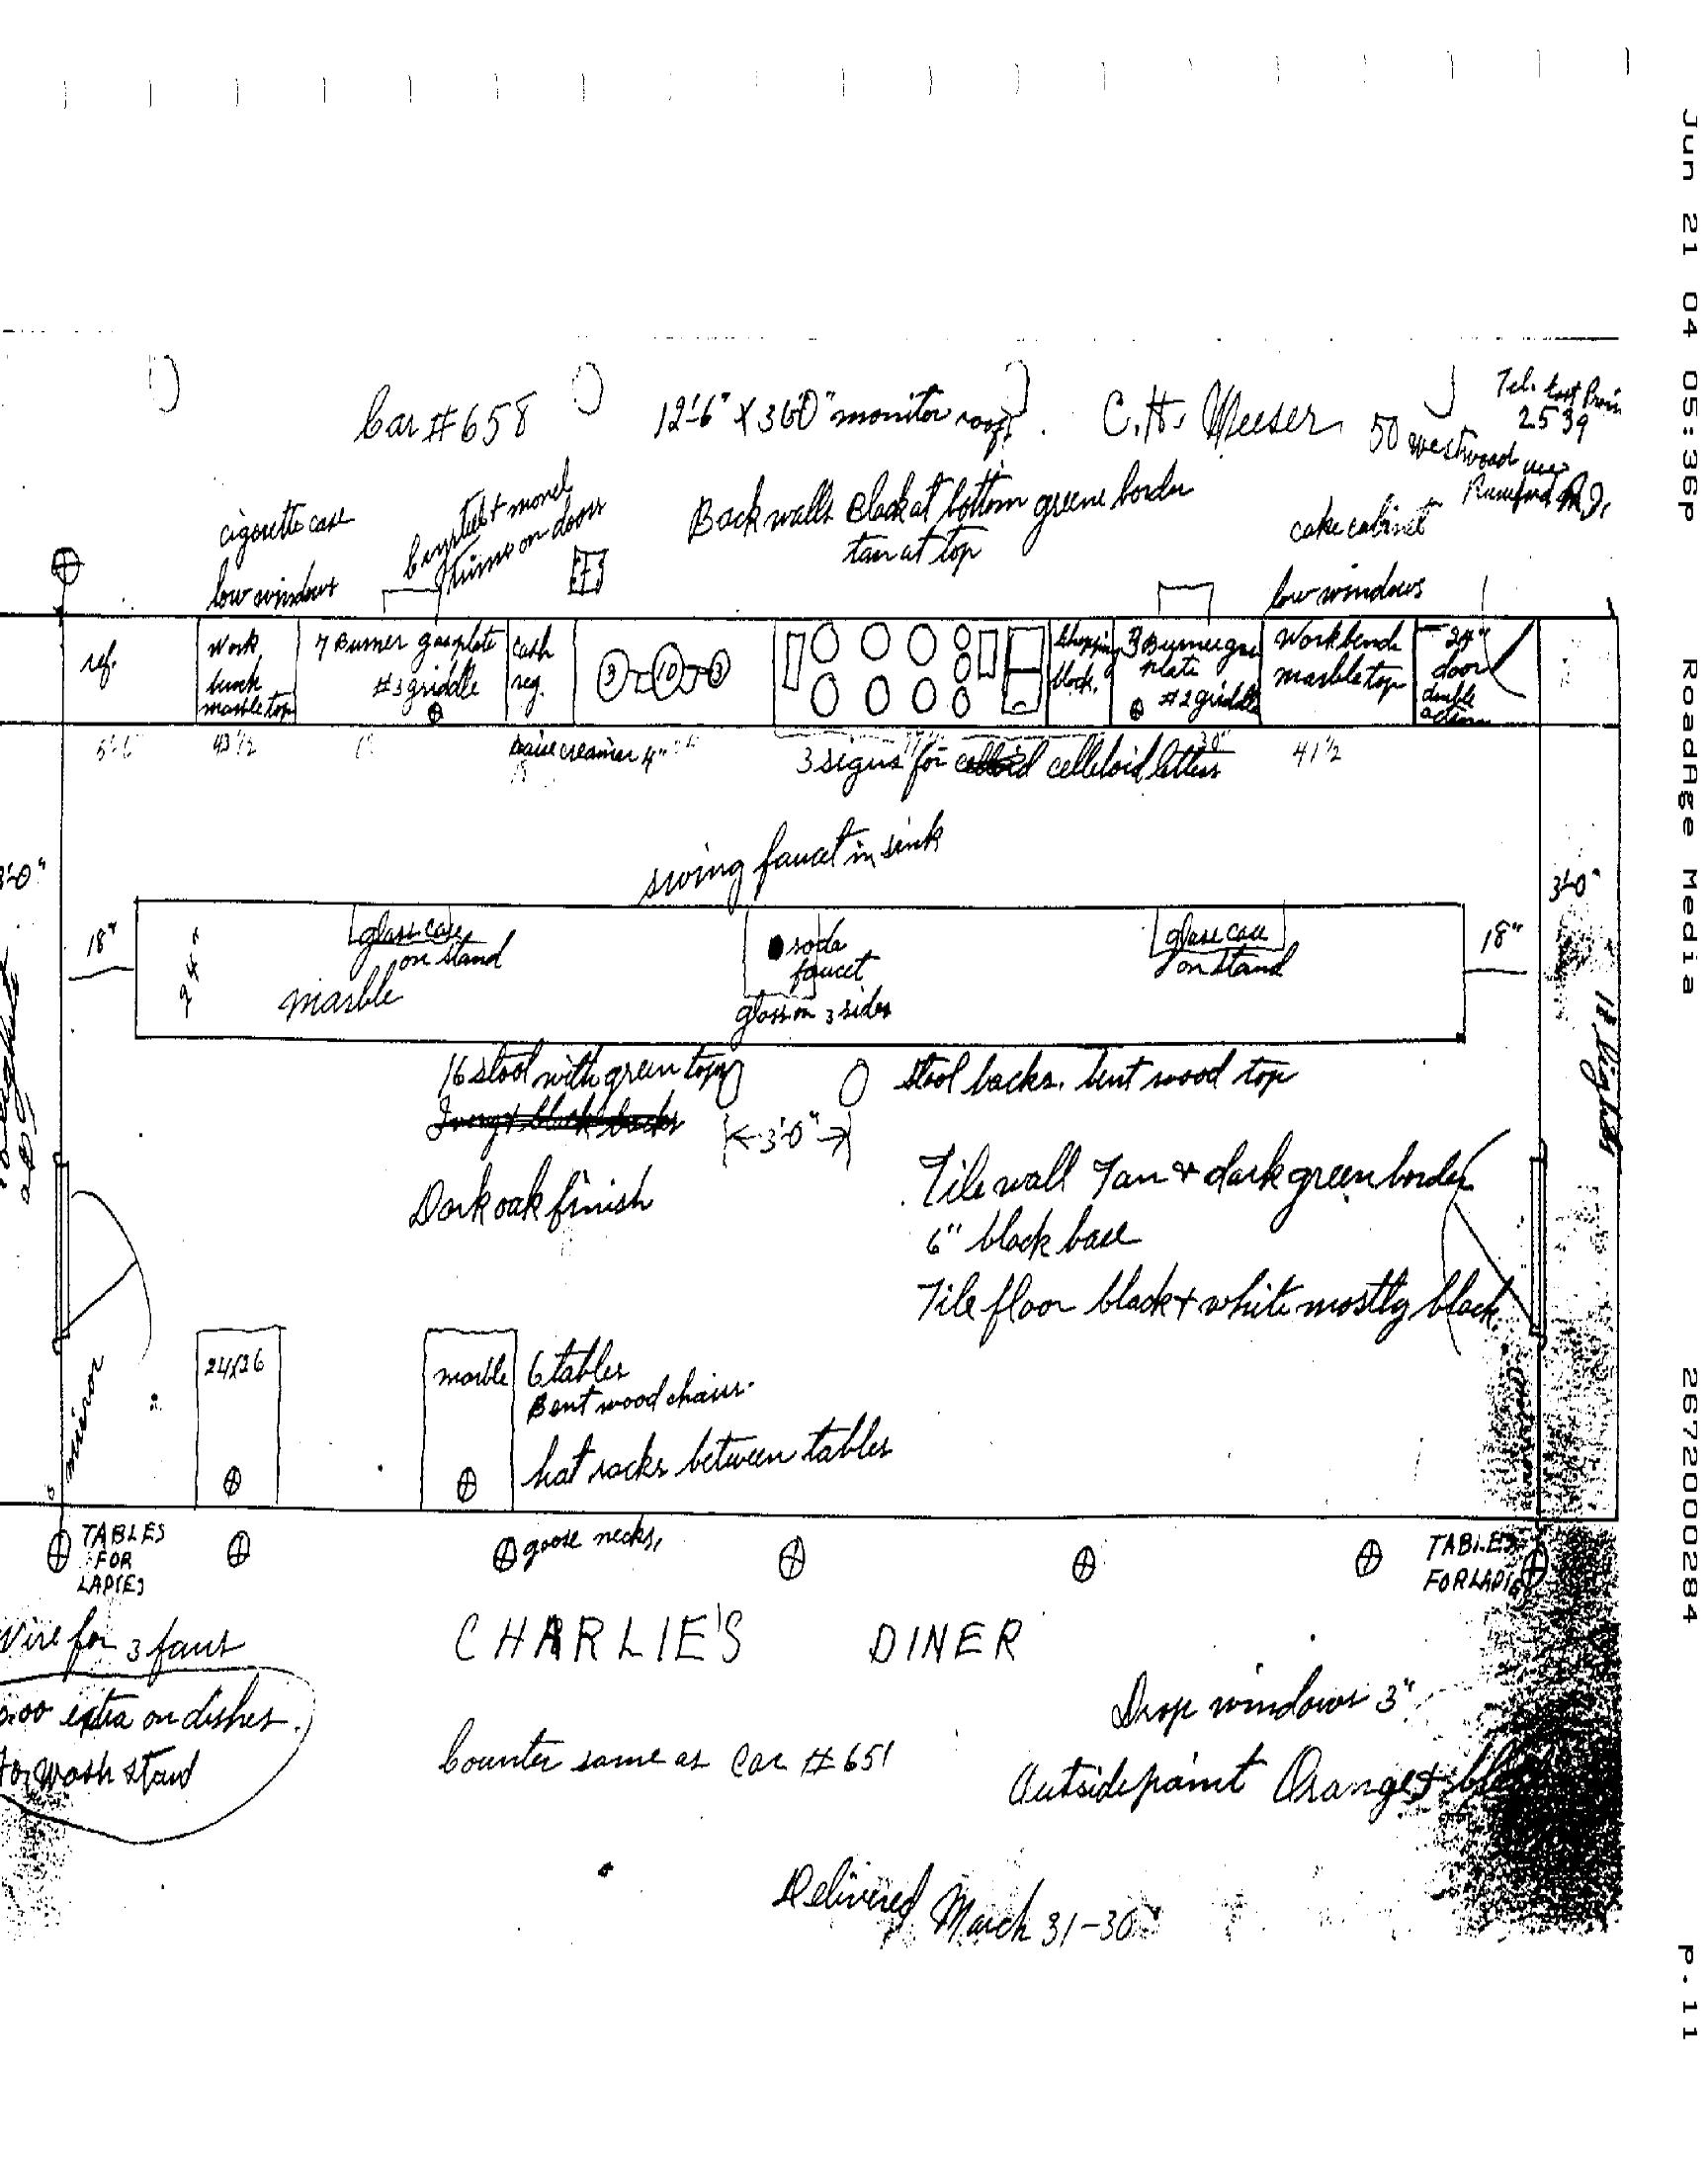 Jun 21 04 05:36p RoadAge Media 2672000284 p.11
Car #658
12'-6" X 36'0" monitor roof.
C. H. Meeser
50 Westwood ave
Rumford R.I.
Tel. East Prov.
2539
cigarette case
low windows
monel
trim on doors
Back walls black at bottom greene border
tan at top
cake cabinet
low windows
ref.
Work
bench
marble top
7 Burner gas plate
#3 griddle
Cash
reg.
3
10
3
Chopping
block.
3 Burner gas
plate
#2 griddle
Work bench
marble top
24"
door
double
action
43 1/2
Raise creamer 4"
3 signs for celleloid letters
30"
41 1/2
swing faucet in sink
3'-0"
3'-0"
18"
24"
glass case
on stand
marble
soda
faucet
glass on 3 sides
glass case
on stand
18"
11 lights
16 stool with green tops
Ivory & black backs
3'-0"
Stool backs. bent wood top
Dark oak finish
Tile wall Tan & dark green border
6" black base
Tile floor black & white mostly black.
mirror
24X26
marble
6 tables
Bent wood chairs.
hat racks between tables
TABLES
FOR
LADIES
goose necks,
TABLES
FOR LADIES
Wire for 3 fans
extra on dishes.
for wash stand
CHARLIE'S DINER
Drop windows 3"
Counter same as Car #651
Outside paint Orange &
Delivered March 31-30